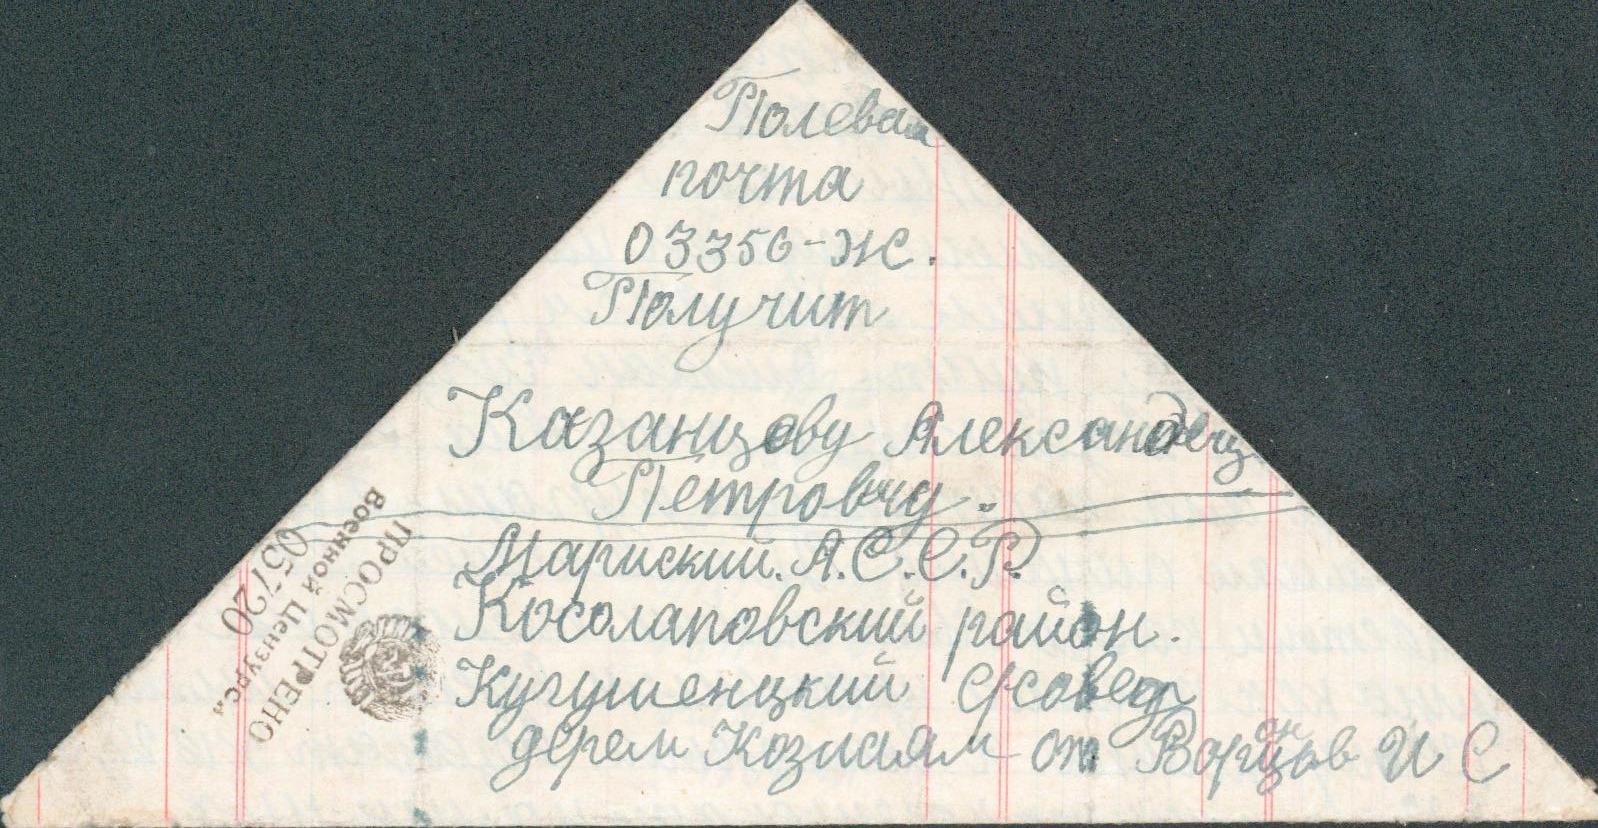 Полевая
почта
03356-Ж.
Получит
Казанцеву Александру
Петровичу.
Мариский. А.С.С.Р.
Косолаповский район.
Кугушенцкий с/совет
дерем от И С
ПРОСМОТРЕНО
Военной Цензурой
05720